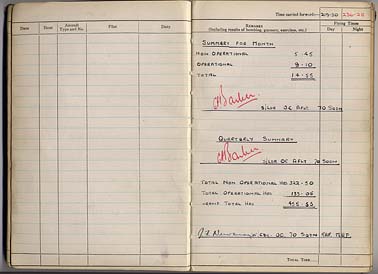 Time carried forward:— 219·30 236·25
Date Hour Aircraft Type and No. Pilot Duty
REMARKS (Including results of bombing, gunnery, exercises, etc.) Flying Times
Day Night
SUMMARY FOR MONTH
NON OPERATIONAL 5 · 45
OPERATIONAL 9 · 10
TOTAL 14 · 55
S/LDR OC AFLT 70 SQDN
QUARTERLY SUMMARY
S/LDR OC AFLT 70 SQDN
TOTAL NON OPERATIONAL HRS 322 - 50
TOTAL OPERATIONAL HRS
GRAND TOTAL HRS
OC. 70 SQDN RAF
TOTAL TIME